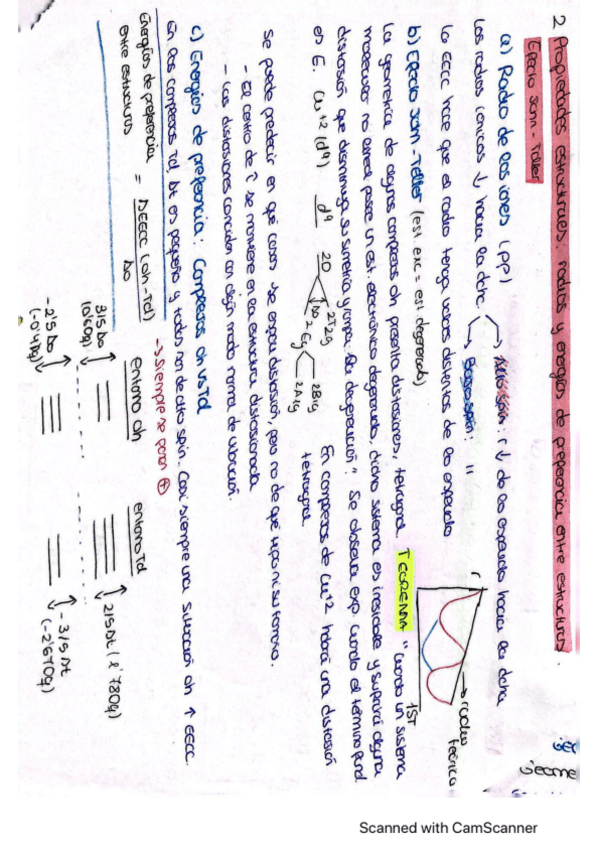 2 Propiedades estructurales: radios y energías de preferencia entre estructuras.
Efecto Jahn-Teller
Geome
a) Radio de los iones (pp)
Los radios iónicos ↓ hacia la dcha.
Alto spin: r ↓ de lo esperado hacia la dcha
Bajo spin: "
La EECC hace que el radio tenga valores distintos de lo esperado
r
radio
teórico
1ST
b) Efecto Jahn-Teller (est. exc = est. degenerado)
La geometría de algunos complejos Oh presenta distorsiones, tetragonal. TEOREMA "cuando un sistema
molecular no lineal posee un est. electrónico degenerado, dicho sistema es inestable y sufrirá alguna
distorsión que disminuya su simetría y rompa la degeneración". Se observa exp. cuando el término fund.
es E. Cu+2 (d9) d9 2D 2T2g Δo 2Eg 2B1g 2A1g
En complejos de Cu+2 habrá una distorsión
tetragonal
Se puede predecir en qué casos se espera distorsión, pero no de qué tipo ni su tamaño.
- El centro de i se mantiene en la estructura distorsionada
- Las distorsiones coinciden con algún modo normal de vibración.
c) Energías de preferencia: Complejos Oh vs Td
En los complejos Td, Δt es pequeño y todos son de alto spin. Casi siempre una situación Oh ↑ EECC.
→ Siempre se ponen (+)
Energías de preferencia
entre estructuras
= ΔEECC (Oh-Td) / Δo
entorno Oh
entorno Td
3/5 Δo
(0'6Dq)
-2'5 Δo
(-0'4Dq)
2/5 Δt (1'78Dq)
-3/5 Δt
(-2'67Dq)
Scanned with CamScanner